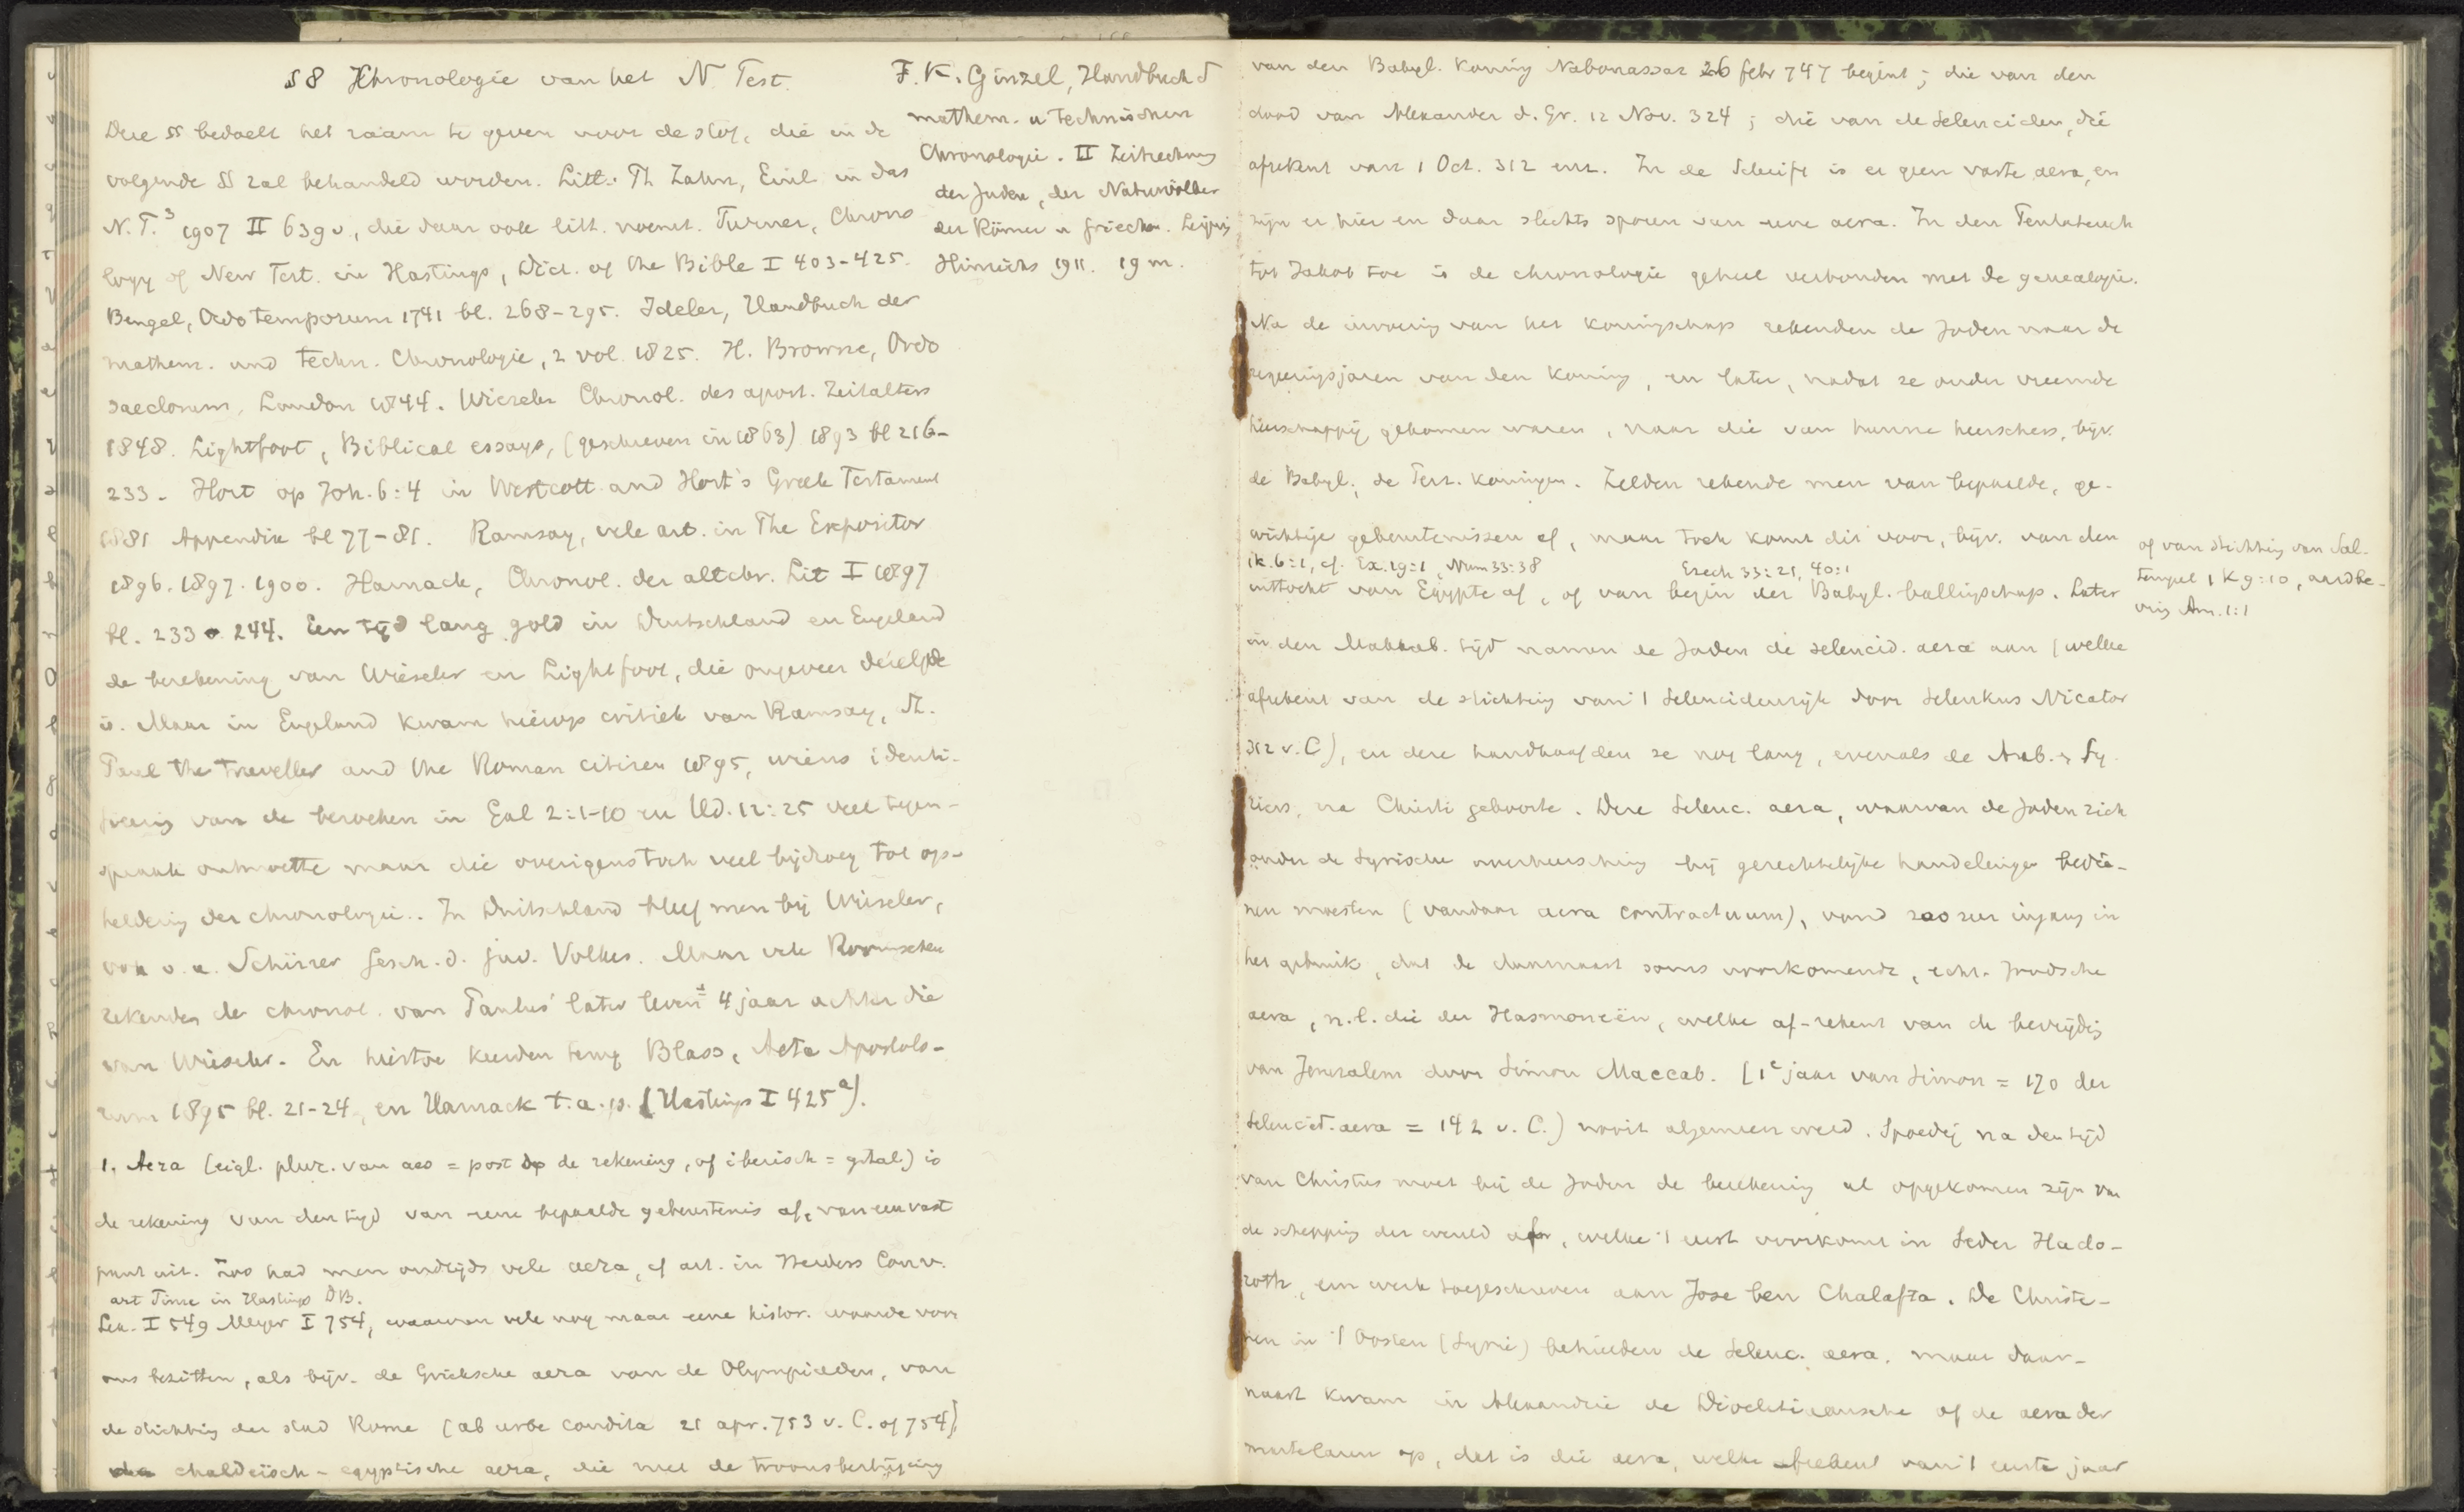 § 8 Chronologie van het N. Test.
Deze §§ bedoelt het raam te geven voor de stof, die in de
volgende §§ zal behandeld worden. Litt.: Th Zahn, Einl in das
N.T.³ 1907 II 639 v., die daar ook litt. noemt. Turner, Chrono
logy of New Test. in Hastings, Dict. of the Bible I 403-425.
Bengel, Ordo temporum 1741 bl. 268-295. Ideler, Handbuch der
mathem. und techn. Chronologie, 2 vol. 1825. H. Browne, Ordo
saeclorum, London 1844. Wieseler Chronol. des apost. Zeitalters
1848. Lightfoot, Biblical essays, (geschreven in 1863) 1893 bl 216-
233. Hort op Joh. 6:4 in Westcott and Hort's Greek Testament
1881 Appendix bl 77-81. Ramsay, vele art. in The Expositor
1896. 1897. 1900. Harnack, Chronol. der altchr. Lit I 1897
bl. 233-244. Een tijd lang gold in Duitschland en Engeland
de berekening van Wieseler en Lightfoot, die ongeveer dezelfde
is. Maar in Engeland kwam hierop critiek van Ramsay, St.
Paul the traveller and the Roman citizen 1895, wiens identi-
ficering van de bezoeken in Gal 2:1-10 en Hd. 12:25 veel tegen-
spraak ontmoette maar die overigens toch veel bijdroeg tot op-
heldering der chronologie. In Duitschland bleef men bij Wieseler,
ook o.a. Schürer Gesch. d. jüd. Volkes. Maar vele Roomschen
rekenden de chronol. van Paulus' later leven ± 4 jaar achter die
van Wieseler. En hiertoe keerden terug Blass, Acta Apostolo-
rum 1895 bl. 21-24, en Harnack t.a.p. (Hastings I 425ᵃ).
1. Aera (eigl. plur. van aes = post op de rekening, of iberisch = getal) is
de rekening van den tijd van eene bepaalde gebeurtenis af, van een vast
punt uit. Zoo had men oudtijds vele aera, cf art. in Herders Conv.
art Time in Hastings DB.
Lex. I 549 Meyer I 754, waarvan vele nog maar eene histor. waarde voor
ons bezitten, als bijv. de Grieksche aera van de Olympiaden, van
de stichting der stad Rome (ab urbe condita 21 apr. 753 v. C. of 754),
chaldeïsch-egyptische aera, die met de troonsbestijging
F. K. Ginzel, Handbuch d
mathem. u technischen
Chronologie. II Zeitrechnung
der Juden, der Naturvölker
der Römer u Griechen. Leipzig
Hinrichs 1911. 19 m.
van den Babyl. koning Nabonassar 26 febr 747 begint; die van den
dood van Alexander d. Gr. 12 Nov. 324; die van de Seleuciden, die
afrekent van 1 Oct. 312 enz. In de Schrift is er geen vaste aera, en
zijn er hier en daar slechts sporen van eene aera. In den Pentateuch
tot Jakob toe is de chronologie geheel verbonden met de genealogie.
Na de invoering van het koningschap rekenden de Joden naar de
regeeringsjaren van den koning, en later, nadat ze onder vreemde
heerschappij gekomen waren, naar die van hunne heerschers, bijv.
de Babyl., de Perz. koningen. Zelden rekende men van bepaalde, ge-
wichtige gebeurtenissen af, maar toch komt dit voor, bijv. van den
1K. 6:1, cf. Ex. 19:1, Num 33:38 Ezech 33:21, 40:1
uittocht van Egypte af, of van begin der Babyl. ballingschap. Later
of van stichting van Sal.
tempel 1 K 9:10, aardbe-
ving Am. 1:1
in den Makkab. tijd namen de Joden de seleucid. aera aan (welke
afrekent van de stichting van 't Seleucidenrijk door Seleukus Nicator
312 v. C), en deze handhaafden ze nog lang, evenals de Arab. & Sy-
riërs, na Christi geboorte. Deze Seleuc. aera, waarvan de Joden zich
onder de Syrische overheersching bij gerechtelijke handelingen bedie-
nen moesten (vandaar aera contractuum), vond zoozeer ingang in
het gebruik, dat de daarnaast soms voorkomende, echt-Joodsche
aera, n.l. die der Hasmoneën, welke af-rekent van de bevrijding
van Jeruzalem door Simon Maccab. (1ᵉ jaar van Simon = 170 der
Seleucid. aera = 142 v. C.) nooit algemeen werd. Spoedig na den tijd
van Christus moet bij de Joden de berekening al opgekomen zijn van
de schepping der wereld af, welke 't eerst voorkomt in Seder Hado-
roth, een werk toegeschreven aan Jose ben Chalafta. De Christe-
nen in 't Oosten (Syrië) behielden de Seleuc. aera. maar daar-
naast kwam in Alexandrië de Diocletiaansche of de aera der
martelaren op, dat is die aera, welke afrekent van 't eerste jaar